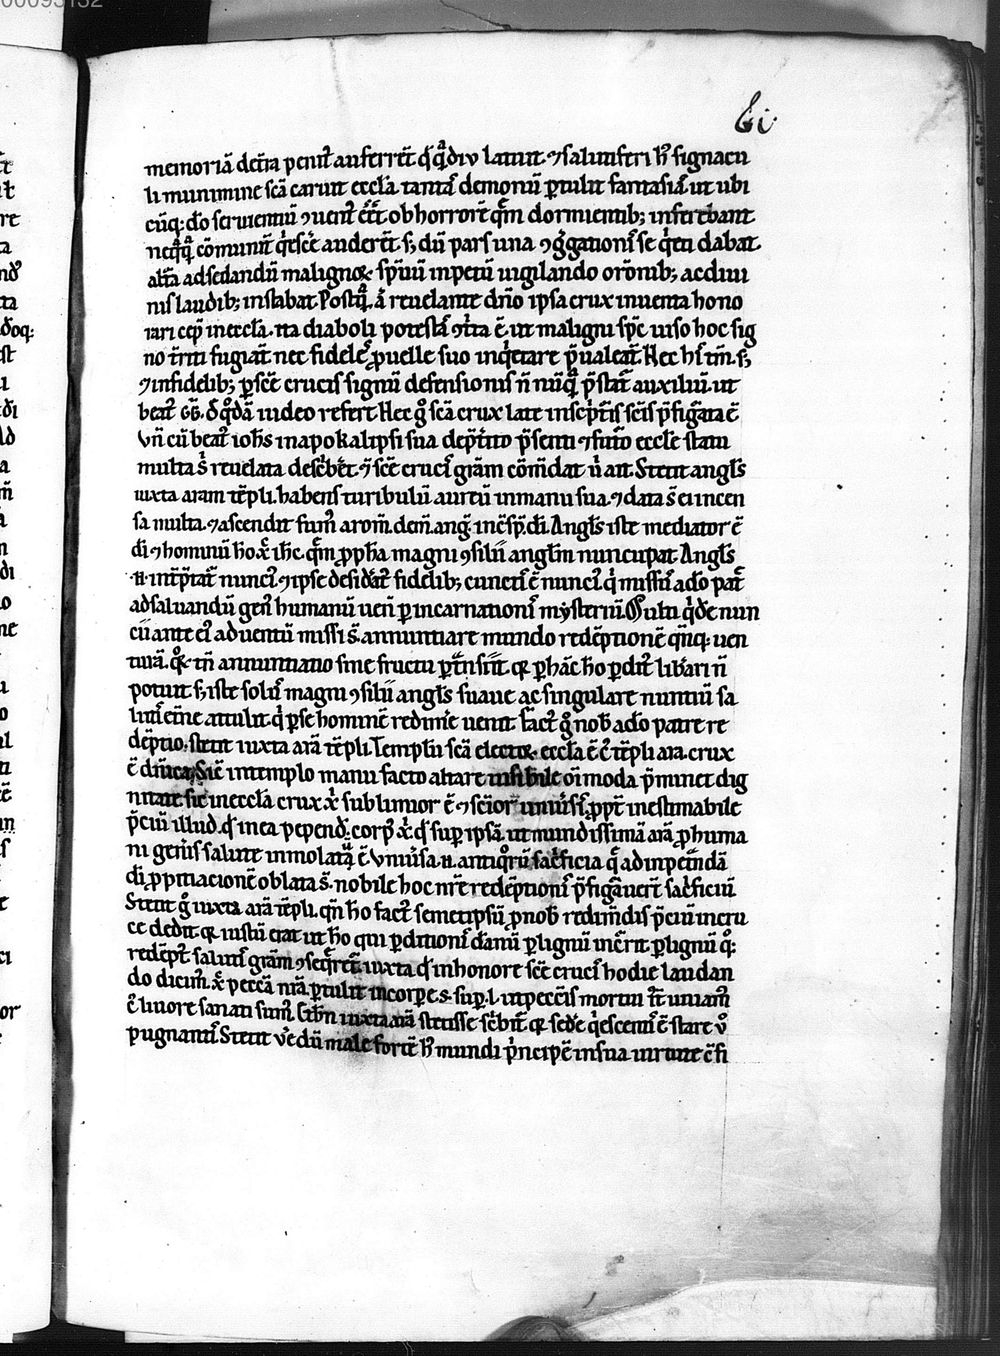 memoriā det̄ta penit᷒ auferret q̄ q̄diu latuit ⁊ saluiferi h᷒ signacu
li munimine sc̄a caruit eccl̄a. tantā demonū ꝑtulit fantasiā ut ubi
cūq; dō seruientiū ⁊uent᷒ ēēt ob horrorē qm̄ dormientib; inferebant
neq̄q̄ cōmunit̄ q̄escē auderēt s; dū pars una ⁊g̃gationis se q̄eti dabat
alt̄a ad sedandū malignoꝝ sp̄uū inpetū uigilando or̄onib; ac diui
nis laudib; instabat. Postq̄ ā reuelante dn̄o ipsa crux inuenta hono
rari cep̄ in eccl̄a. ita diaboli potestas ⁊t̄ta ē. ut maligni sp̄c uiso hoc sig
no t̄riti fugiāt nec fideles ꝓ uelle suo inq̄etare p̄ualeāt. Hec h᷒ tm̄ s;
⁊ infidelib; ꝑ sc̄e crucis signū defensionis n̄ nūq̄ p̄stat᷒ auxiliū. ut
beat᷒ GG. d̄ q̄dā iudeo refert. Hec g᷒ sc̄a crux late in sc̄ptis sc̄is p̄figata ē
Vn̄ cū beat᷒ ioh̄s in apokalipsi sua de p̄t̄ito p̄senti ⁊ futō eccl̄e statu
multa s᷒ reuelata desc̄bēt ⁊ sc̄e crucis grām cōm̄dat᷒ ū ait. Stetit angl̄s
iuxta aram tēpli. habens turibulū aureū in manu sua. ⁊ data s̄ ei incen
sa multa. ⁊ ascendit fum᷒ arom̄. de m̄. ang̃. in c̄sp̄. dī. Angl̄s iste mediator ē
dī ⁊ hominū hō xp̄c ih̄c. qm̄ ꝓph̄a magni ⁊silii angl̄m nuncupat. Angl̄s
.n̄. int̄p̄tat᷒ nunci᷒ ⁊ ipse desid̄at᷒ fidelib; cunctis ē nunci᷒ q̄ missus a dō pat᷒
ad saluandū gen᷒ humanū uen̄ ꝑ incarnationis mysteriū. Multi q̄de nun
cii ante ei᷒ aduentū missi s̄. annuntiare mundo redēptionē qn̄q; uen
turā. qꝝ tn̄ annuntiatio sine fructu ꝑt̄nsiit qꝛ ꝑ hāc hō ꝑdit᷒ lib̄ari n̄
potuit. s; iste solus magni ⁊silii angl̄s suaue ac singulare nuntiū sa
lutis ētne attulit. q̄ ꝑ se hominē redimē uenit. fact᷒ g᷒ nob̄ a dō patre re
dēptio. stetit iuxta arā tēpli. Templū sc̄a electoꝝ eccl̄a ē. c᷒ tēpli ara. crux
ē dn̄ica. Sic̄ in templo manu facto altare uisibile oīmoda p̄minet dig
nitate sic in eccl̄a crux xp̄i sublimior ē ⁊ sc̄ior uniu᷒sis ꝓpt̄ inestimabile
p̄ciū illud. q̄ in ea pependit. corp᷒ xp̄i. q̄ sup̄ ipsā. ut mundissimā arā ꝓ huma
ni gen̄is salute inmolatū ē. Vniu᷒sa .n̄. antiq̄rū sac̄ficia q̄ ad inpet̄andā
dī ꝓpitiacionē oblata s̄. nobile hoc nr̄e redēptionis p̄figāuert̄ sac̄ficiū
Stetit g᷒ iuxta arā tēpli. qn̄ hō fact᷒ semetipsū ꝓ nob̄ redim̄dis p̄ciū in cru
ce dedit qꝛ iustū erat ut hō qui ꝑditionis dānū ꝑ lignū in̄erit. ꝑ lignū q᷒;
redēpt᷒ salutis grām ⁊seq̄ret᷒. iuxta q̄ in honore sc̄e crucis hodie laudan
do dicim᷒. xp̄c peccā nrā. ꝑtulit in corpe. s. sup̄. l. ut peccīs mortui
ē liuore sanati sum᷒. stetisse sc̄bit᷒ qꝛ sedē q̄escentis ē stare ū
pugnantis. Stetit ū dū male fortē h᷒ mundi p̄ncipē in sua uirtute cf̄i